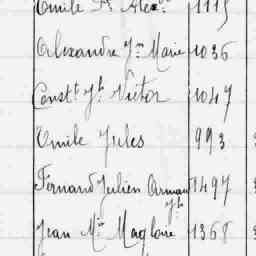 Emile Fs Alexre 1115
Alexandre Jn Marie 1036
Constt Jh Victor 1047
Emile Jules 993
Fernand Julien Arman 1497
Jh
Jean Mie Magloire 1368